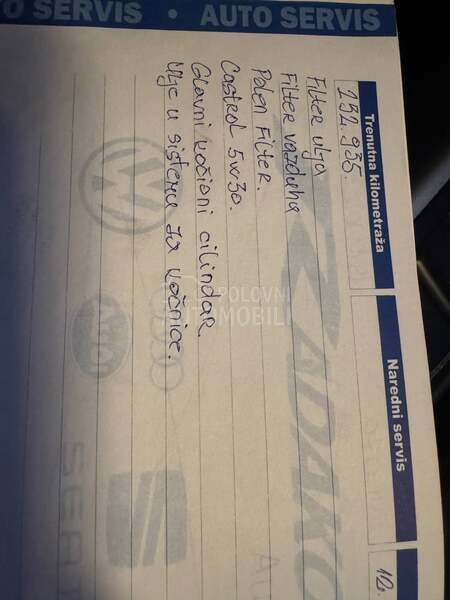 O SERVIS • AUTO SERVIS
Trenutna kilometraža
Naredni servis
232.935.
12.
Filter ulja
Filter vazduha
Polen Filter.
Castrol 5w30.
Glavni kočioni cilindar.
Ulje u sistemu za kočnice.
POLOVNI
AUTOMOBILI
ADAKO
SEA